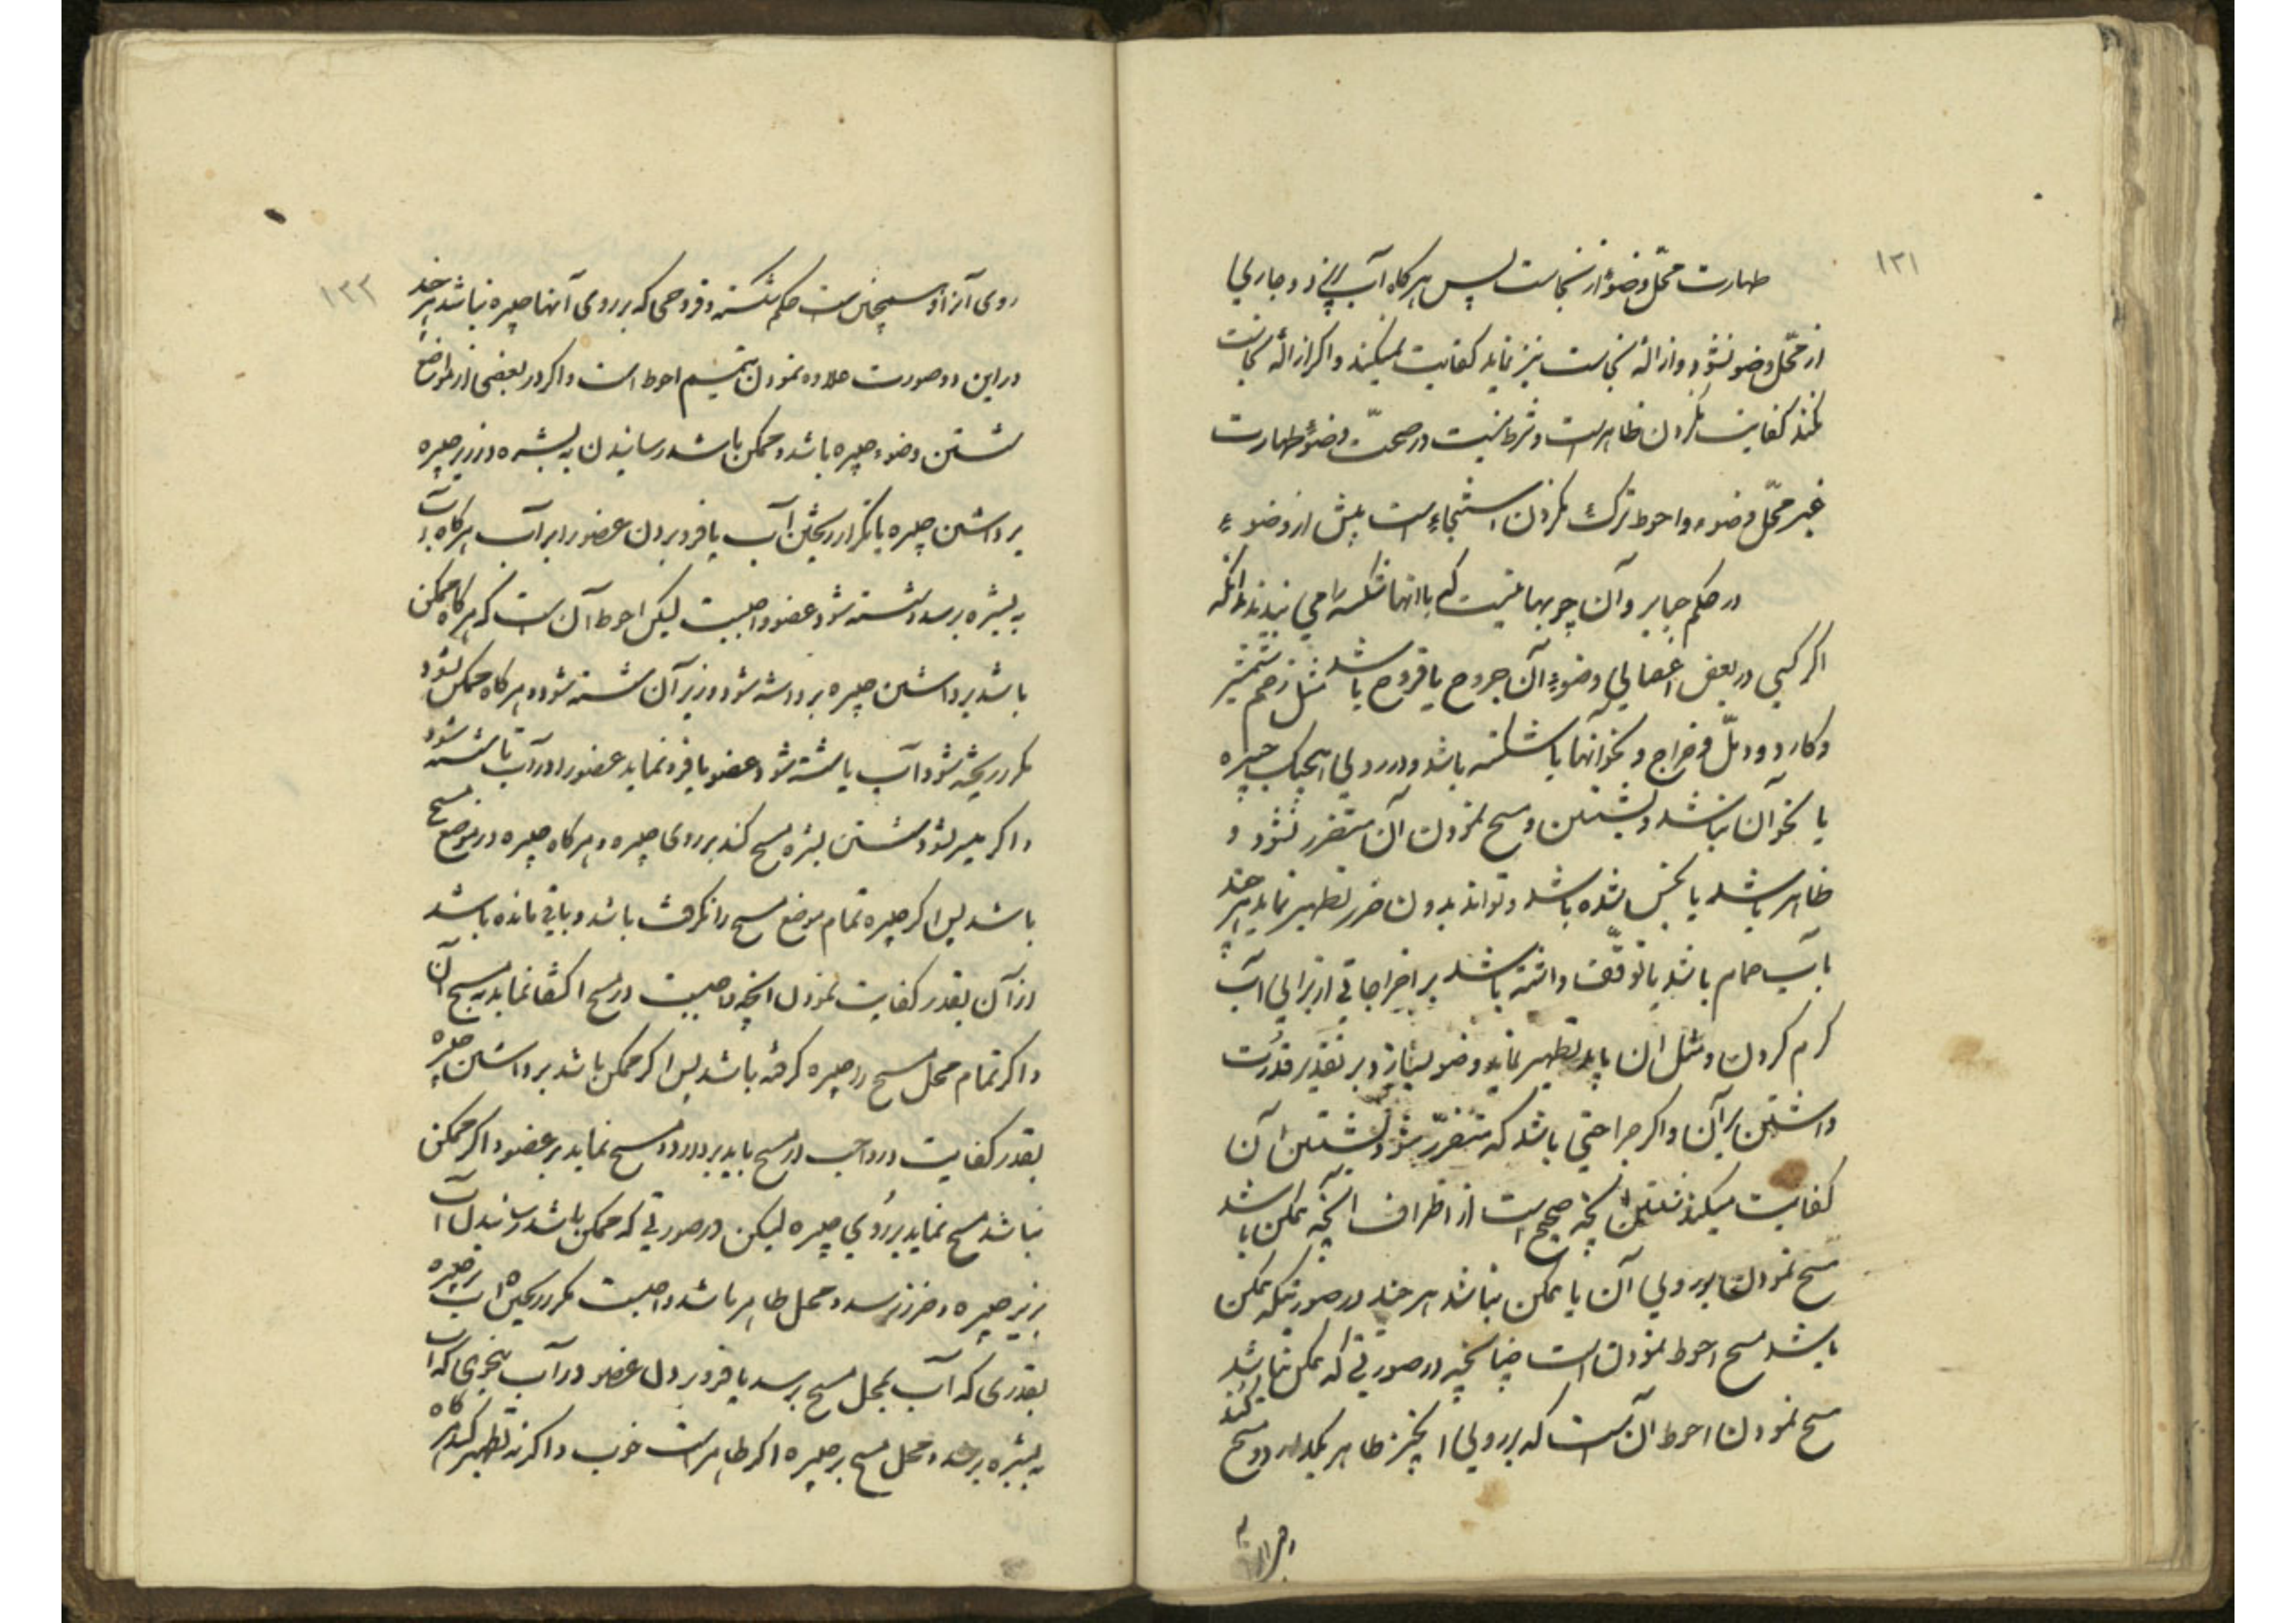 ۱۲۱
طهارت محل وضوء از نجاست پس هرگاه آب
از محل وضو نشود و ازالهٔ نجاست نیز نماید کفایت نمیکند و اگر ازالهٔ نجاست
نکند کفایت نکردن ظاهر است و شرط نیست در صحّت وضوء طهارت
غیر محلّ وضوء و احوط ترک نکردن استنجاء است پیش از وضوء
در حکم جبایر و آن چوبهائیست که باانها شکسته را می بندند بدانکه
اگر کسی در بعض اعضای وضوء آن جروح یا قروح باشد مثل زخم شمشیر
و کارد و دمّل و خراج و نحو آنها یا شکسته باشد و در روی هیچیک جبیره
یا نحو آن نباشد و بشستن و مسح نمودن آن متضرر نشود و
ظاهر باشد یا نجس شده باشد و تواند بدون ضرر تطهیر نماید هر چند
بآب حمام باشد یا توقّف داشته باشد بر اخراجاتی از برای آب
گرم کردن و مثل ان باید تطهیر نماید وضو بسازد بر تقدیر قدرت
داشتن بر آن و اگر جراحتی باشد که متضرّر شود بشستن آن
کفایت میکند شستن انچه صحیح است از اطراف انچه ممکن باشد
مسح نمودن بر روی آن یا ممکن نباشد هر چند در صورتیکه ممکن
باشد مسح احوط نمودن است چنانچه در صورتی که ممکن نباشد
مسح نمودن احوط آن است که بر روی ان چیز طاهر بگذارد و مسح کند
بر
۱۲۲
روی آنرا و همچنین است حکم شکسته و قروحی که بر روی آنها جبیره نباشد هر چند
در این دو صورت علاوه نمودن تیمم احوط است و اگر در بعضی از مواضع
شستن وضوء جبیره باشد و ممکن باشد رسانیدن به بشره در زیر جبیره
برداشتن جبیره یا تکرار ریختن آب یا فرو بردن عضو را در آب هرگاه آب
به بشره برسد و شسته شود عضو واجبست لیکن احوط آن است که هرگاه ممکن
باشد برداشتن جبیره برداشته شود و زیر آن شسته شود و هرگاه ممکن نشود
مکرر ریخته شود آب یا شسته شود عضو یا فرو نماید عضو را در آب تا شسته شود
و اگر میسر نشود شستن بشره مسح کند بر روی جبیره و هرگاه جبیره در موضع مسح
باشد پس اگر جبیره تمام موضع مسح را نگرفته باشد و باقی مانده باشد
از آن بقدر کفایت نمودن انچه واجبست در مسح اکتفا نماید بمسح آن
و اگر تمام محل مسح را جبیره گرفته باشد پس اگر ممکن باشد برداشتن جبیره
بقدر کفایت در واجب از مسح باید بردارد و مسح نماید بر عضو و اگر ممکن
نباشد مسح نماید بر روی جبیره لیکن در صورتی که ممکن باشد رسانیدن آب
بزیر جبیره و ضرر نرسد و محل طاهر باشد واجبست مکرر ریختن آب بر جبیره
بقدری که آب بمحل مسح برسد یا فرو بردن عضو در آب بنحوی که آب
به بشره برسد و محل مسح بر جبیره اگر طاهر است خوب و اگر نه تطهیر کند هرگاه